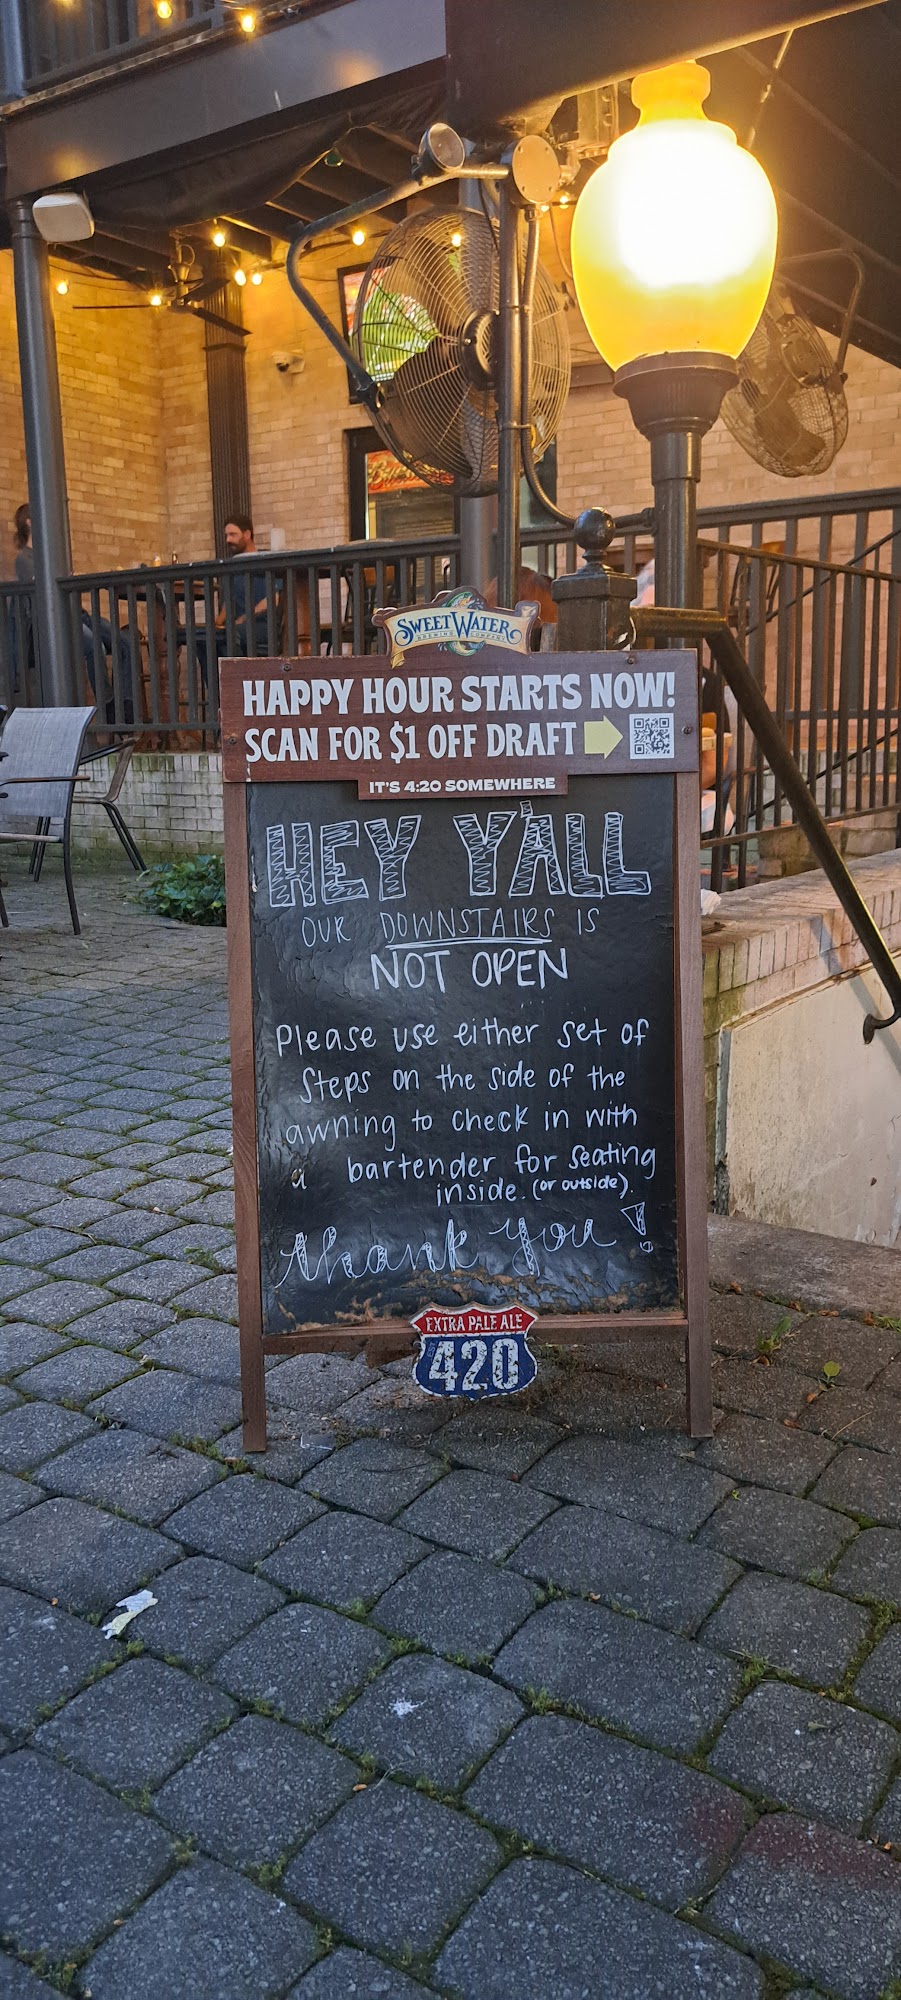 SWEETWATER
BREWING COMPANY
HAPPY HOUR STARTS NOW!
SCAN FOR $1 OFF DRAFT
IT'S 4:20 SOMEWHERE
HEY Y'ALL
OUR DOWNSTAIRS IS
NOT OPEN
Please use either set of
Steps on the side of the
awning to check in with
a bartender for seating
inside. (or outside).
thank you!
EXTRA PALE ALE
420